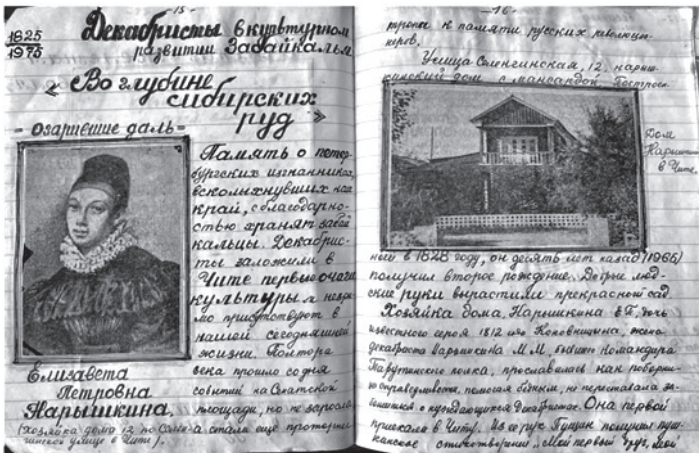 - 15 -
1825
1975
Декабристы в культурном
развитии Забайкалья
«Во глубине
сибирских
руд»
- Озарившие даль -
Память о петер-
бургских изгнанниках,
всколыхнувших наш
край, с благодарно-
стью хранят забай
кальцы. Декабрис-
ты заложили в
Чите первые очаги
культуры и незри-
мо присутствуют в
нашей сегодняшней
жизни. Полтора
века прошло со дня
событий на Сенатской
площади, но не заросла
Елизавета
Петровна
Нарышкина.
(Хозяйка дома 12 по
в Чите).
стала ещё проторен
- 16 -
тропы к памяти русских революцио-
неров.
Улица Селенгинская, 12, нарыш-
кинский дом с мансардой. Построен-
Дом
Нарышк
в Чите.
ной в 1828 году, он десять лет назад (1965)
получил второе рождение. Добрые люд-
ские руки вырастили прекрасный сад
Хозяйка дома, Нарышкина Е.П., дочь
известного героя 1812 Коновницына, жена
декабриста Нарышкина М.М., бывшего командира
Тарутинского полка, прославилась как поборни-
справедливости, помогая бедным, не переставала за-
о нуждающихся декабристах. Она первой
приехала в Читу. Из её рук Пущин получил пуш-
кинское стихотворение „Мой первый друг, мой